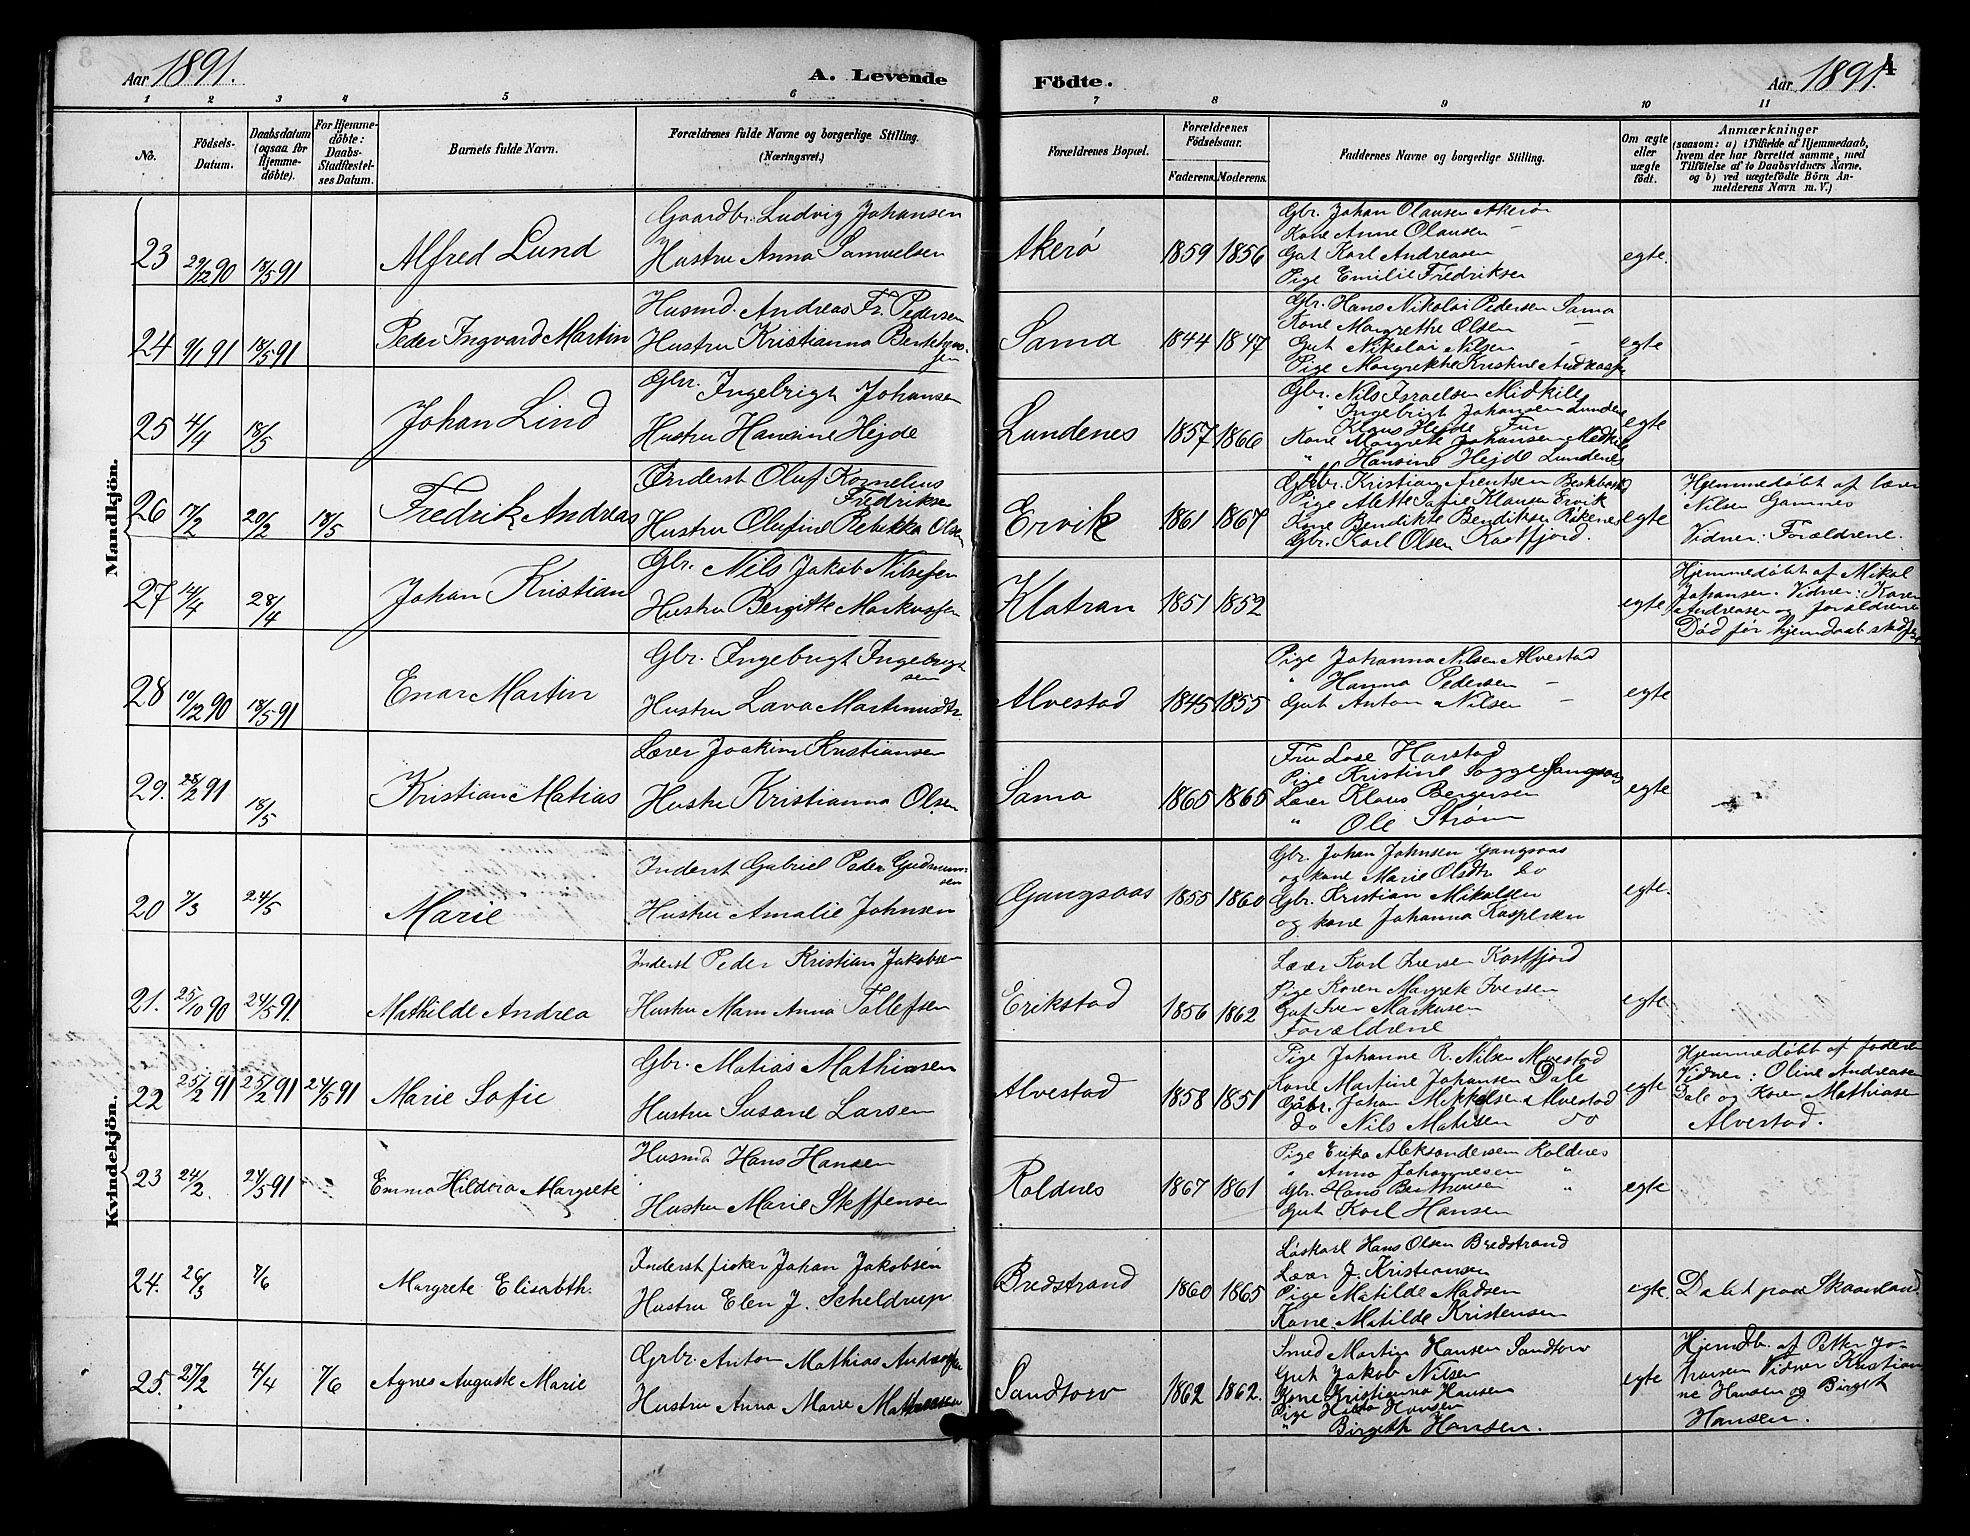 Aar 1891.
A. Levende
Födte.
Aar 1891.
4
1 2 3 4 5 6 7 8 9 10 11
No.
Födsels-
Datum.
Daabsdatum
(ogsaa for
Hjemme-
döbte).
For Hjemme-
döbte:
Daabs-
Stadfæstel-
ses Datum.
Barnets fulde Navn.
Forældrenes fulde Navne og borgerlige Stilling.
(Næringsvei.)
Forældrenes Bopæl.
Forældrenes
Födselsaar.
Faderens. Moderens.
Faddernes Navne og borgerlige Stilling.
Om ægte
eller
uægte
födt.
Anmærkninger
(saasom: a) i Tilfælde af Hjemmedaab,
hvem der har forrettet samme, med
Tilföielse af to Daabsvidners Navne,
og b) ved uægtefödte Börn An-
melderens Navn m. V.)
Mandkjön.
23 29/12 90 18/5 91
Alfred Lund
Gaardbr. Ludvig Johansen
Hustru Anna Samuelsen
Akerö 1859 1856
Gbr. Johan Olausen Akerön
Kone Anne Olausen -
Gut Karl Andreasen
Pige Emilie Fredriksen
egte.
24 9/1 91 18/5 91
Peder Ingvard Martin
Husmd. Andreas Fr. Pedersen
Hustru Kristianna
Sama 1844 1847
Gbr. Hans Nikolai Pedersen Sama
Kone Margrethe Olsen -
Gut Nikolai Nilsen -
Pige Margrethe Kristine
egte
25 4/4 18/5
Johan Lind
Gbr. Ingebrigt Johansen
Hustru Hansine Hejde
Lundenes 1857 1866
Gbr. Nils Israelsen Midkile
" Ingebrigt Johansen
Klaus Hejde
Kone Margrete Johansen
" Hansine Hejde Lundenes
egte
26 17/2 20/2 18/5
Fredrik Andreas
Inderst Oluf Kornelius
Fredriksen
Hustru Olufine Rebekka Olsen
Ervik 1861 1867
Gbr. Kristian Arentsen
Pige Alette Sofie Klausen Ervik
Kone Bendikte Bendiksen Rökenes
Gbr. Karl Olsen Kastfjord.
egte
Hjemmedöbt af lærer
Nilsen Gamnes
Vidner: Forældrene.
27 14/4 28/4
Johan Kristian
Gbr. Nils Jakob Nilssen
Hustru Bergitte Markussen
Klatran 1851 1852
egte
Hjemmedöbt af Mikal
Johansen. Vidner: Karen
Andreasen og forældrene
Död för hjemdaab.
28 10/12 90 18/5 91
Enar Martin
Gbr. Ingebrigt Ingebrigt
sen
Hustru Lava
Alvestad 1845 1855
Pige Johanna Nilsen Alvestad
" Hanna Pedersen -
Gut Anton Nilsen -
egte
29. 28/2 91 18/5
Kristian Matias
Lærer Joakim Kristiansen
Hustru Kristianna Olsen
Sama 1865 1865
Fru Lose Harstad
Pige Kristine
Lærer Klaus Bergersen
" Ole Ström
egte
Kvindekjön.
20 7/3 24/5
Marie
Inderst Gabriel Peder Gudmun-
sen
Hustru Amalie Johnsen
Gangsaas 1855 1860
Gbr. Johan Johnsen Gangsaas
og kone Marie Olsdtr do
Gbr. Kristian Mikalsen
og kone Johanna Kaspersen
egte.
21. 25/10 90 24/5 91.
Mathilde Andrea
Inderst Peder Kristian Jakobsen
Hustru Marn Anna Tollefsen
Erikstad 1856 1862
Lærer Karl Iversen Kastfjord
Pige Karen Margrete Iversen
Gut Iver Markusen
Forældrene
egte
22 25/2 91 25/2 91 24/5 91
Marie Sofie
Gbr. Matias Mathiasen
Hustru Susane Larsen
Alvestad 1858 1851
Pige Johanne R. Nilsen Alvestad
Kone Martine Johansen Dale
Gbr. Johan Mikkelsen Alvestad
do Nils Matisen do
egte
Hjemmedöbt af faderen
Vidner: Oline Andreasen
Dale og Karen Mathiasen
Alvestad.
23 24/2. 24/5 91
Emma Hildora Margrete
Husmd Hans Hansen
Hustru Marie Steffensen
Roldnes 1867 1861
Pige Erika Aleksandersen Roldnes
Anna Johannesen "
Gbr. Hans Berthensen "
Gut Karl Hansen
egte
24. 26/3 7/6
Margrete Elisabth.
Inderst fisker Johan Jakobsen
Hustru Elen J. Scheldrup
Bredstrand 1860 1865
Löskarl Hans Olsen Bredstrand
Lærer J. Kristiansen
Pige Matilde Madsen
Kone Matilde Kristensen
egte.
Döbt paa Skaanland
25. 27/2 4/4 7/6
Agnes Auguste Marie
Grbr. Anton Mathias Andreassen
Hustru Anna Marie
Sandtorv 1862 1862.
Smed Martin Hansen Sandtorv
Gut Jakob Nilsen
Kone Kristianna Hansen
Pige Hilda Hansen
" Birgeth Hansen.
egte
Hjemdb. af Petter Jo-
hansen Vidner Kristian-
ne Hansen og Birget
Hansen.